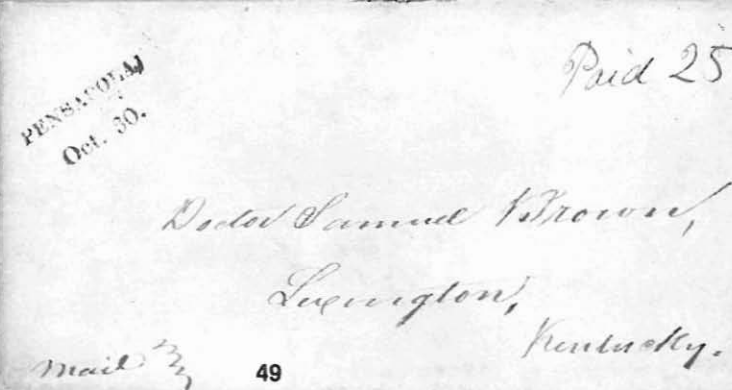 PENSACOLA
Oct. 30.
Paid 25
Doctor Samuel Brown,
Lexington,
Kentucky.
Mail
49